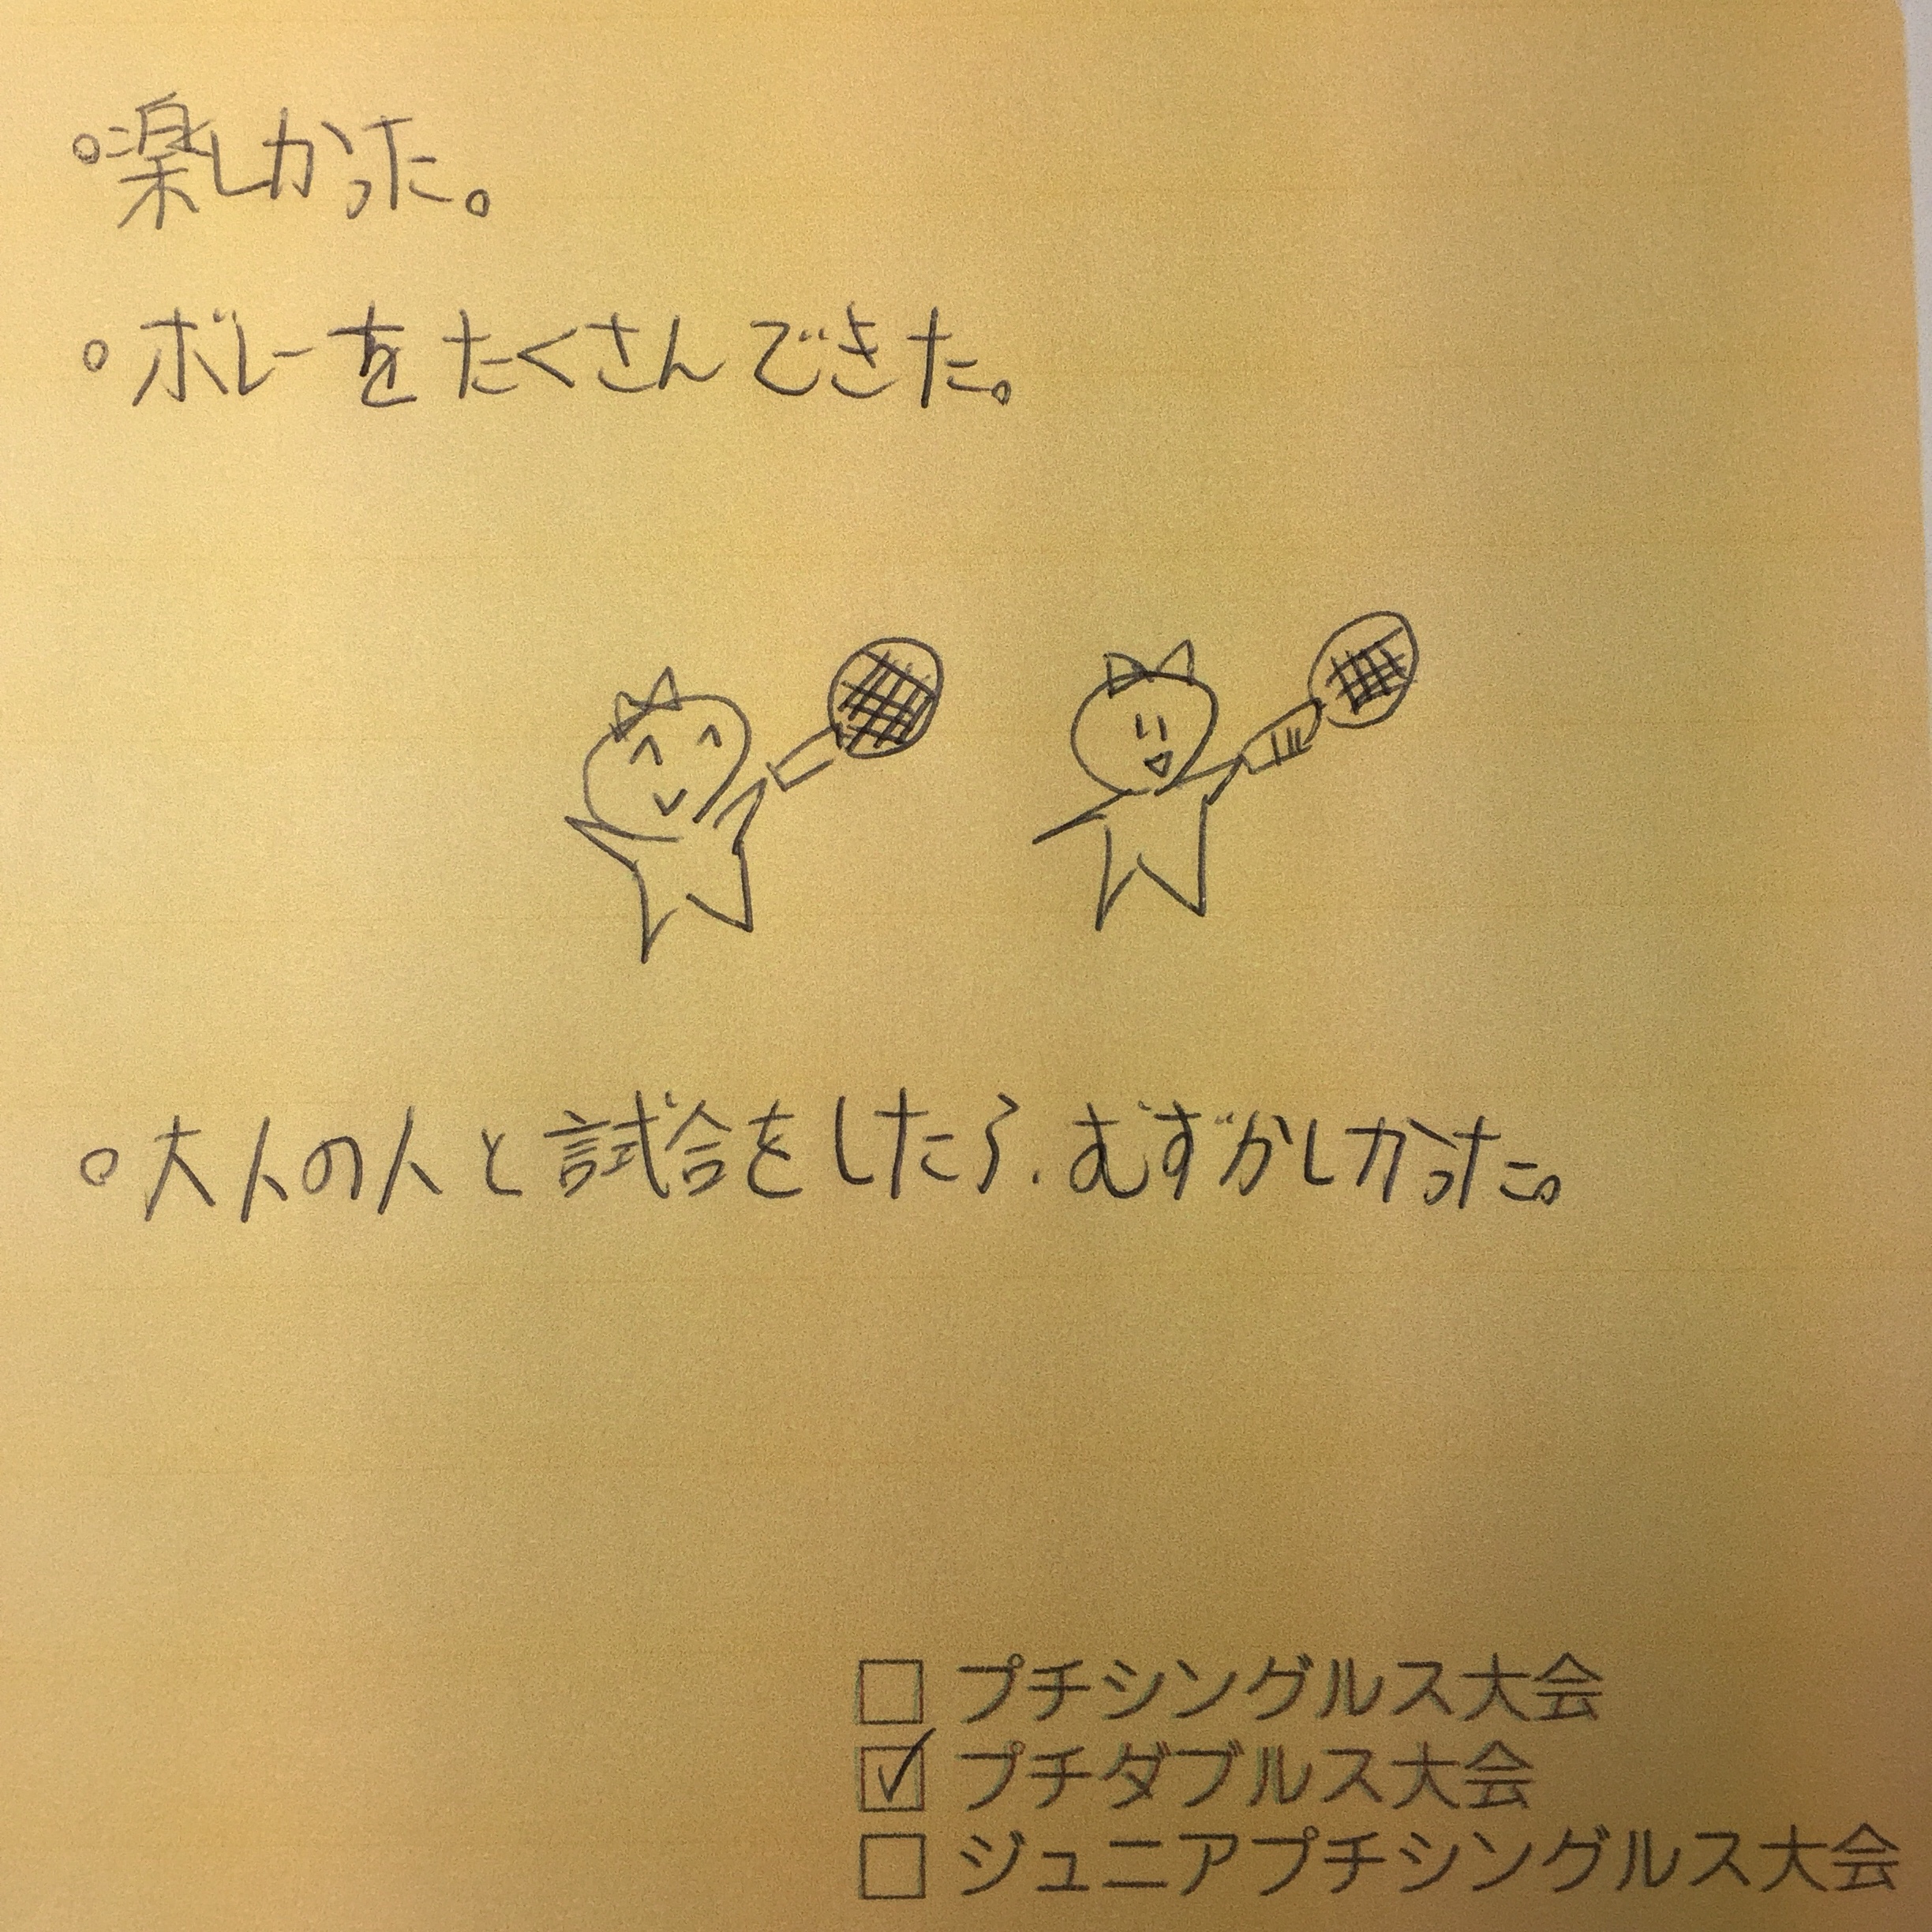 ○楽しかった。
○ボレーをたくさんできた。
○大人の人と試合をしたら、むずかしかった。
□ プチシングルス大会
☑ プチダブルス大会
□ ジュニアプチシングルス大会